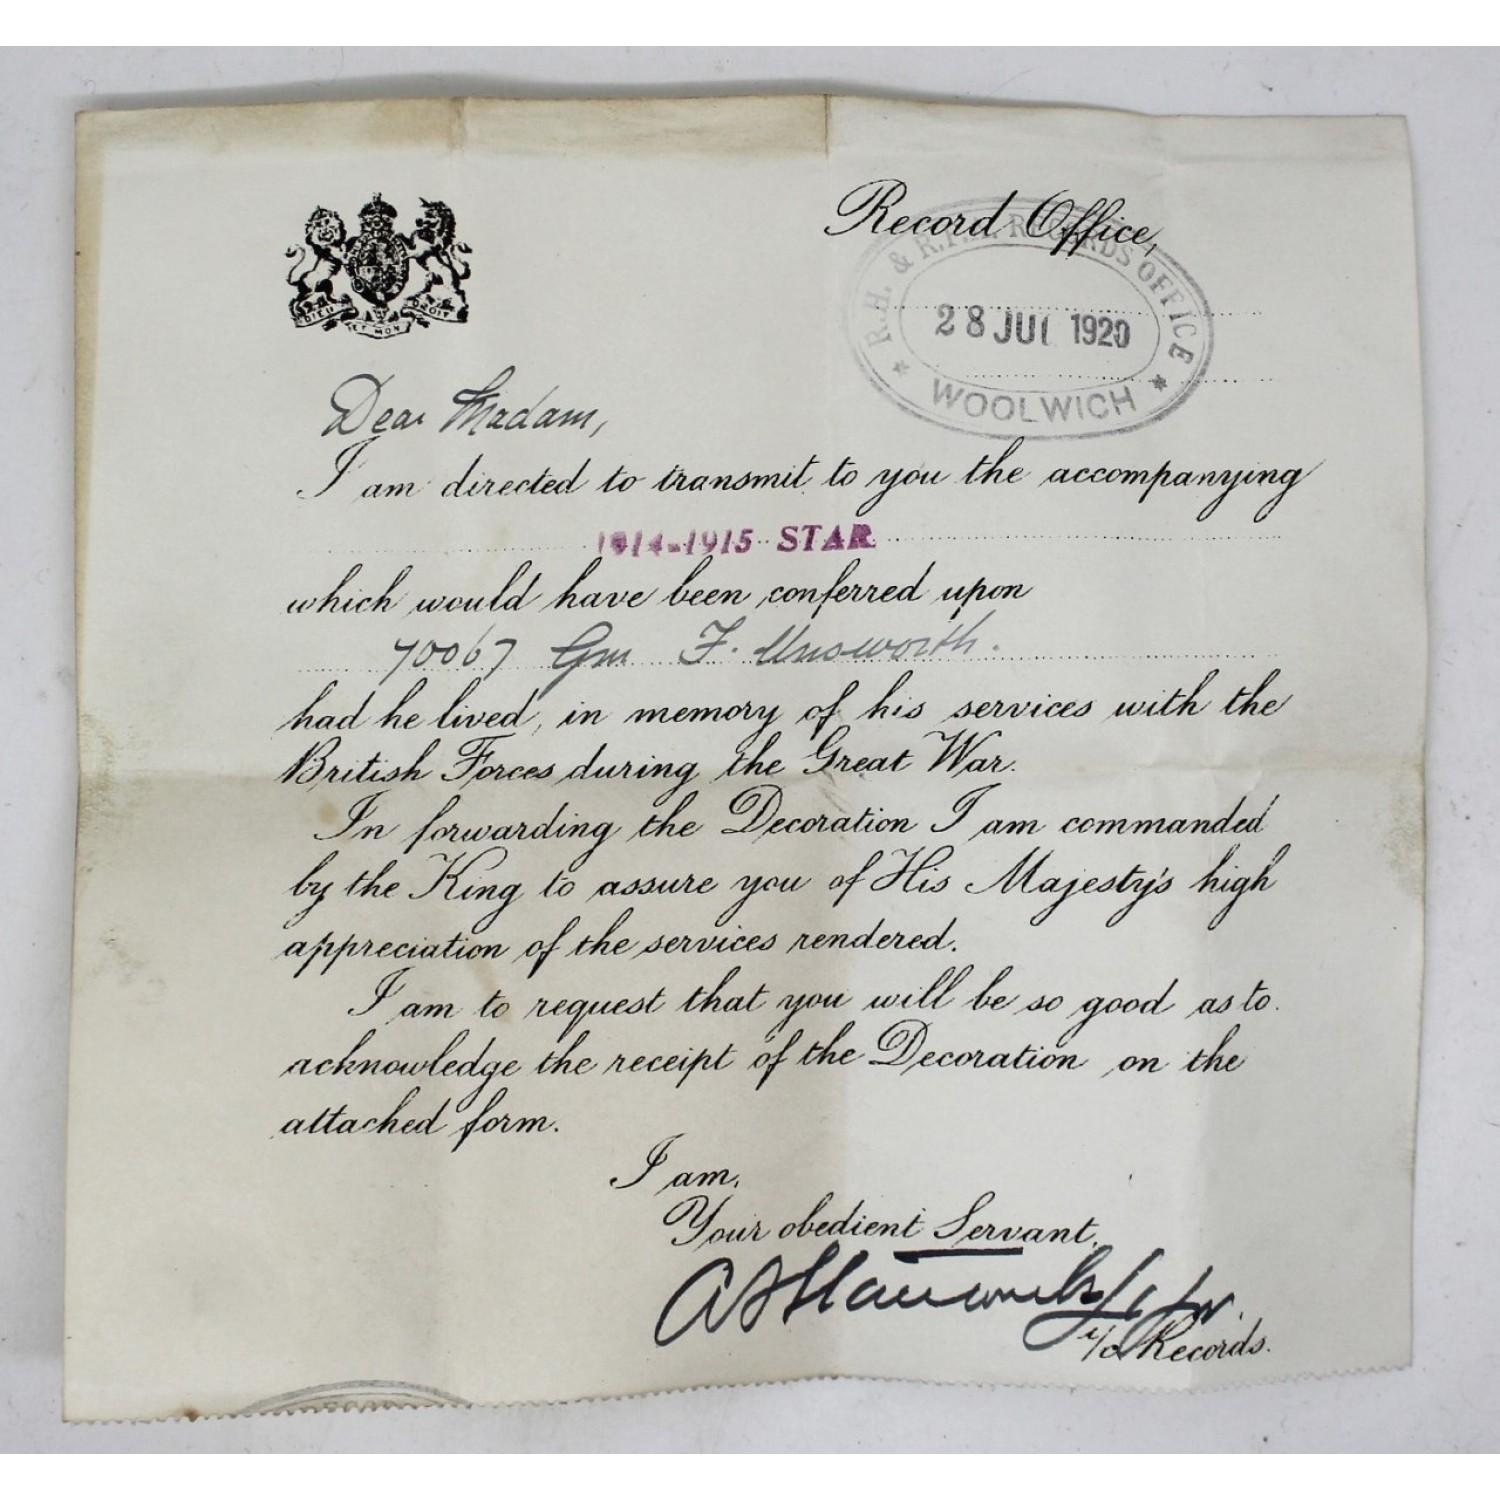 DIEU ET MON DROIT
Record Office,
R.H. & R.F.A. RECORDS OFFICE
28 JUL 1920
WOOLWICH
Dear Madam,
I am directed to transmit to you the accompanying
1914-1915 STAR
which would have been conferred upon
70067 Gnr F. Unsworth.
had he lived, in memory of his services with the
British Forces during the Great War.
In forwarding the Decoration I am commanded
by the King to assure you of His Majesty's high
appreciation of the services rendered.
I am to request that you will be so good as to
acknowledge the receipt of the Decoration on the
attached form.
I am,
Your obedient Servant,
i/c Records.